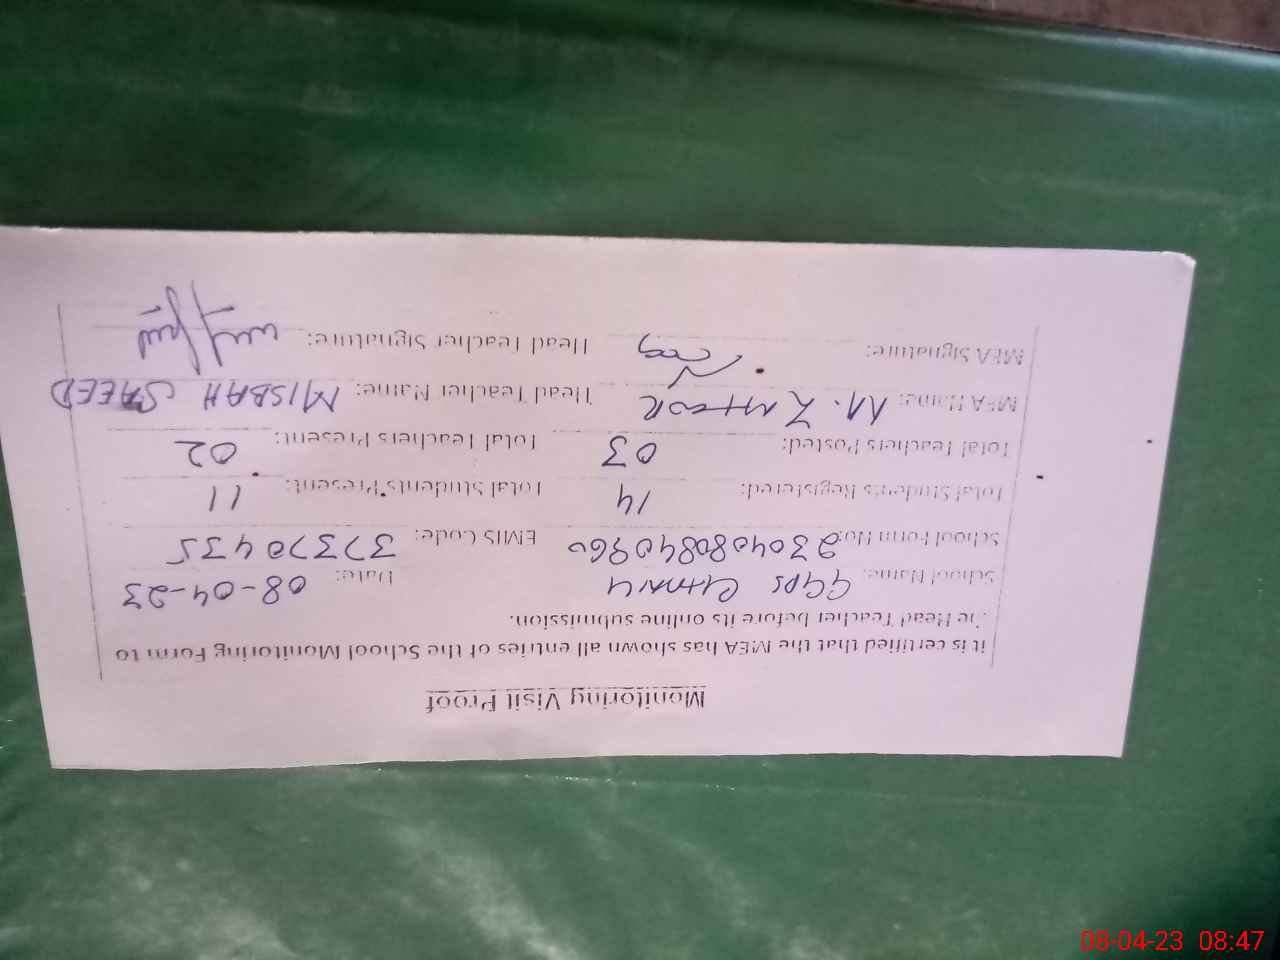 Monitoring Visit Proof
it is certified that the MEA has shown all entries of the School Monitoring Form to
The Head Teacher before its online submission.
School Name: GGPS Date: 08-04-23
School Form No: 2304080840960 EMIS Code: 37370435
Total Students Registered: 14 Total Students Present: 11
Total Teachers Posted: 03 Total Teachers Present: 02
MEA Name: M. Head Teacher Name: MISBAH SAEED
MEA Signature: Head Teacher Signature:
08-04-23 08:47